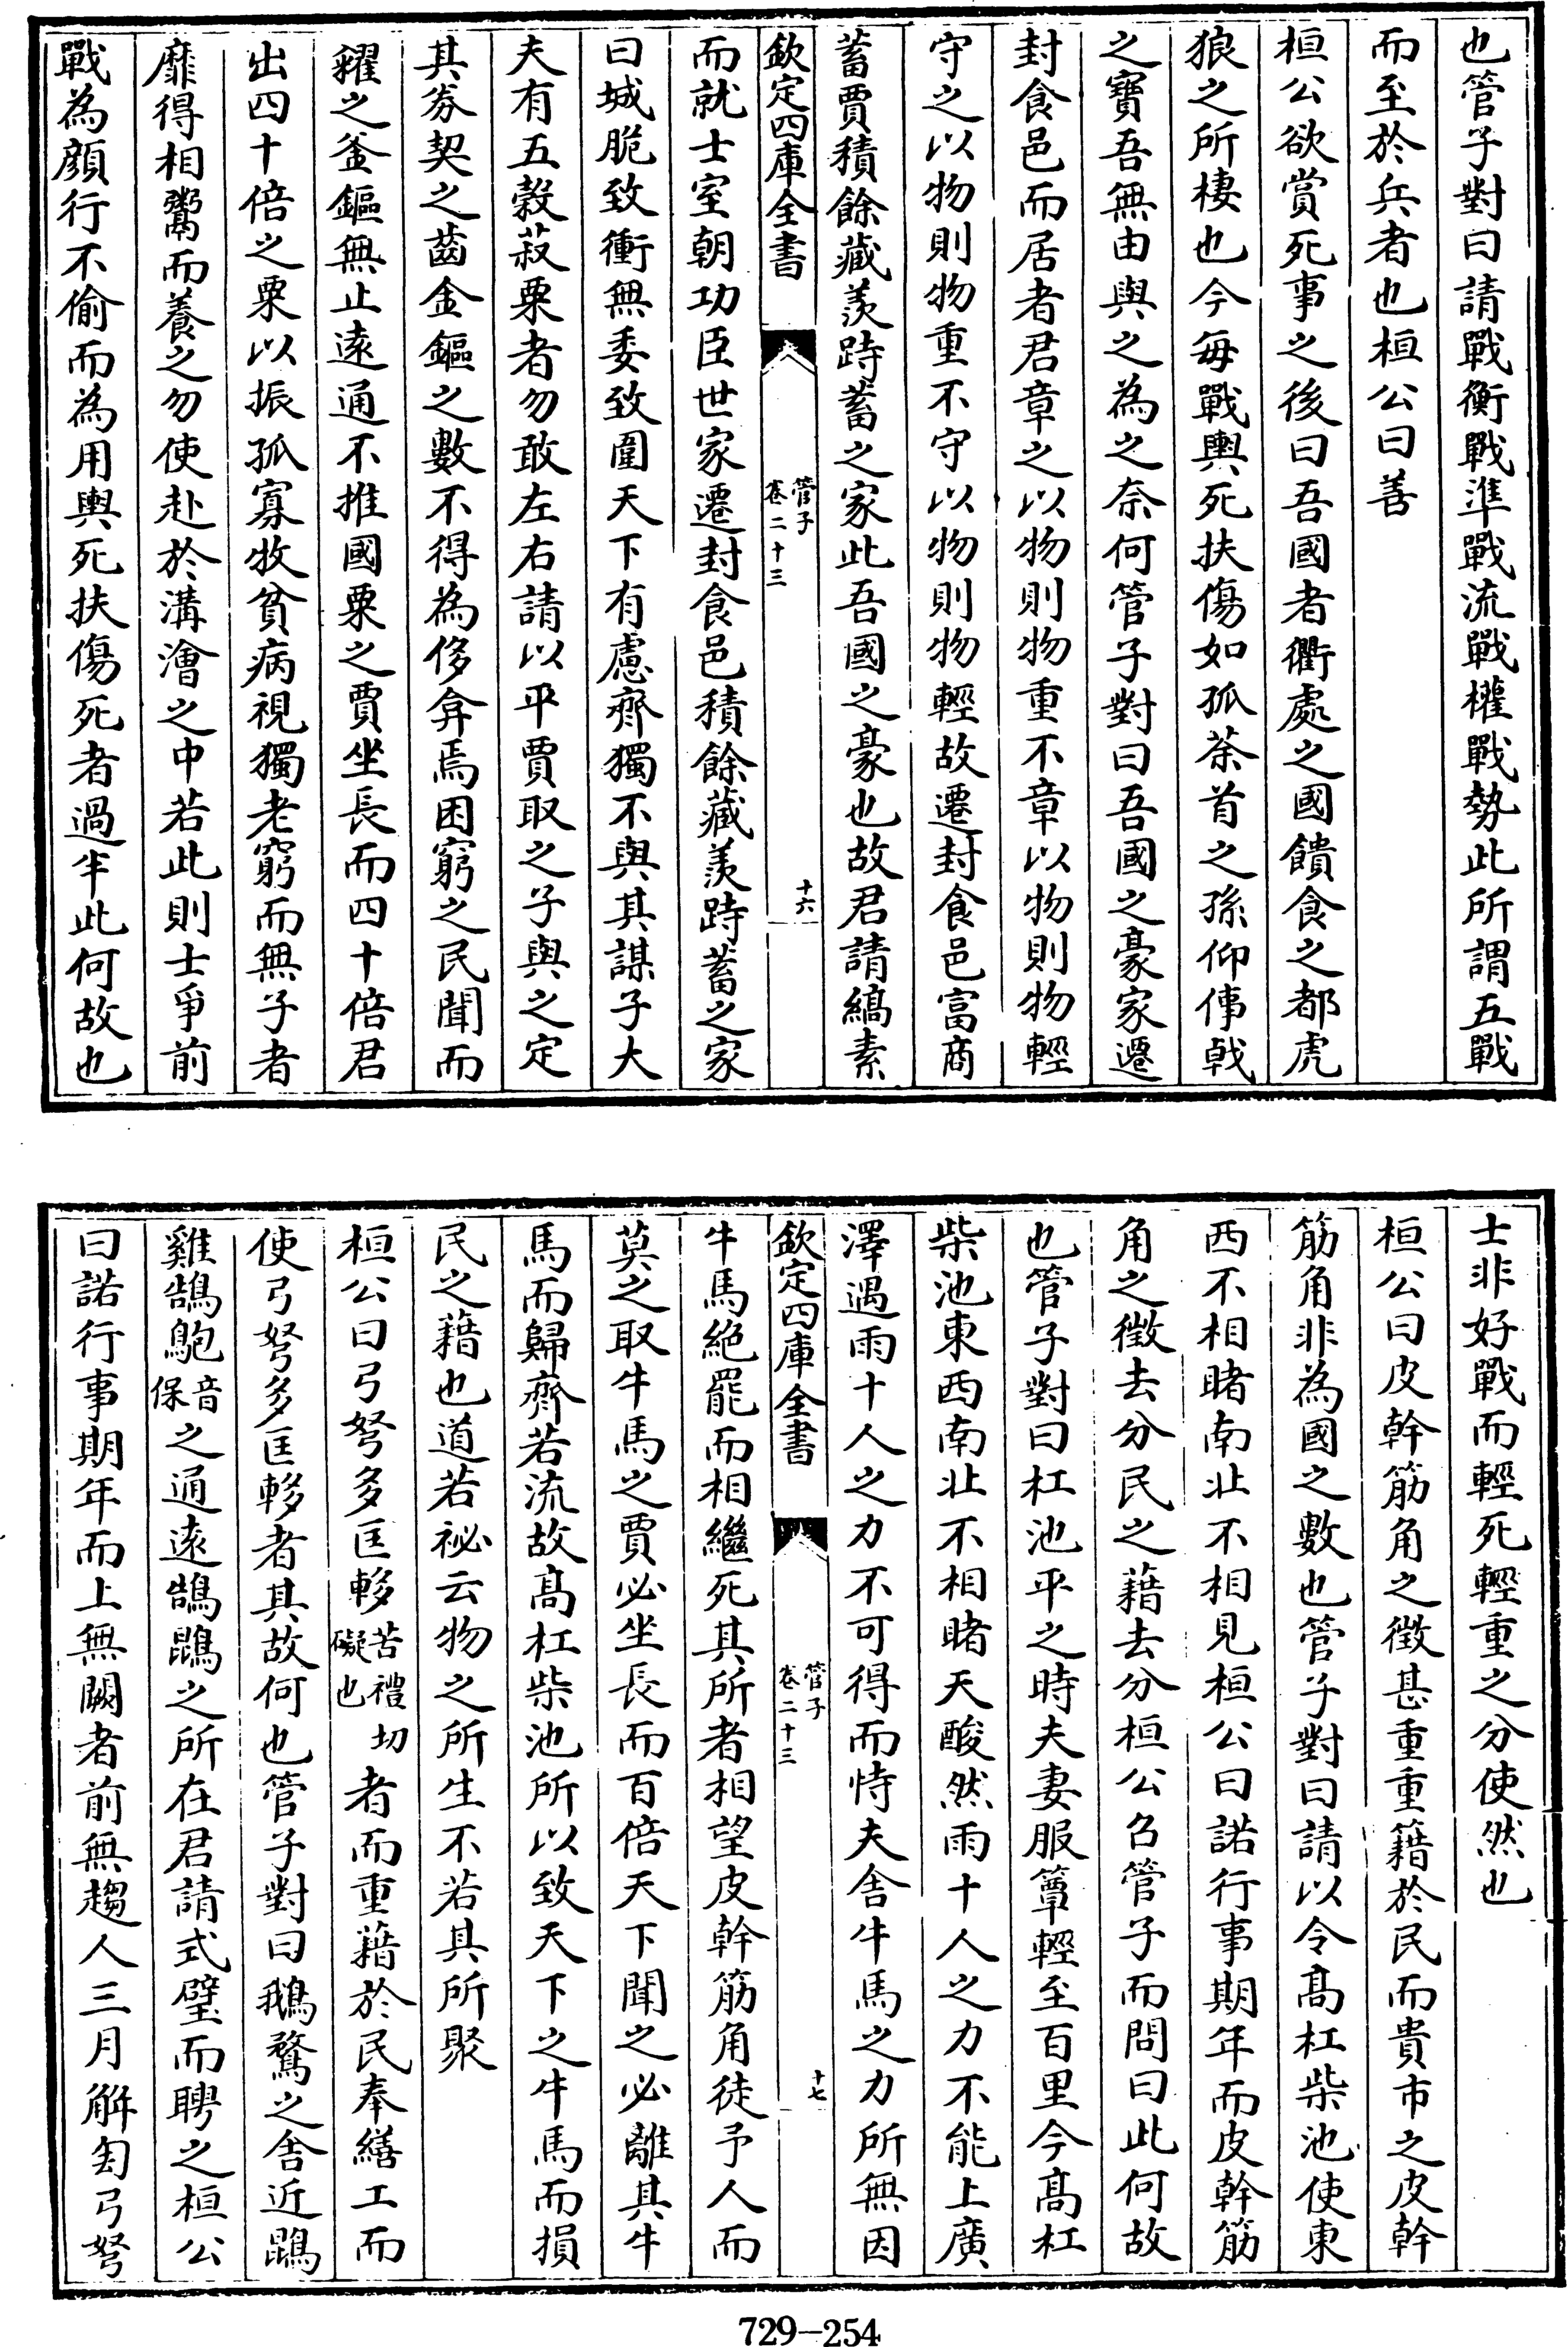 也管子對曰請戰衡戰準戰流戰權戰勢此所謂五戰
而至於兵者也桓公曰善
桓公欲賞死事之後曰吾國者衢處之國饋食之都虎
狼之所棲也今每戰輿死扶傷如孤荼首之孫仰倳戟
之寶吾無由與之為之奈何管子對曰吾國之豪家遷
封食邑而居者君章之以物則物重不章以物則物輕
守之以物則物重不守以物則物輕故遷封食邑富商
蓄賈積餘藏羨跱蓄之家此吾國之豪也故君請縞素
欽定四庫全書
管子
卷二十三
十六
而就士室朝功臣世家遷封食邑積餘藏羨跱蓄之家
曰城脆致衝無委致圍天下有慮齊獨不與其謀子大
夫有五榖菽粟者勿敢左右請以平賈取之子與之定
其劵契之齒金鏂之數不得為侈弇焉困窮之民聞而
糴之釜鏂無止遠通不推國粟之賈坐長而四十倍君
出四十倍之粟以振孤寡牧貧病視獨老窮而無子者
靡得相鬻而養之勿使赴於溝澮之中若此則士爭前
戰為顔行不偷而為用輿死扶傷死者過半此何故也
士非好戰而輕死輕重之分使然也
桓公曰皮幹筋角之徵甚重重籍於民而貴市之皮幹
筋角非為國之數也管子對曰請以令髙杠柴池使東
西不相睹南北不相見桓公曰諾行事期年而皮幹筋
角之徵去分民之藉去分桓公召管子而問曰此何故
也管子對曰杠池平之時夫妻服簟輕至百里今髙杠
柴池東西南北不相睹天酸然雨十人之力不能上廣
澤遇雨十人之力不可得而恃夫舎牛馬之力所無因
欽定四庫全書
管子
卷二十三
十七
牛馬絶罷而相繼死其所者相望皮幹筋角徒予人而
莫之取牛馬之賈必坐長而百倍天下聞之必離其牛
馬而歸齊若流故髙杠柴池所以致天下之牛馬而損
民之藉也道若祕云物之所生不若其所聚
桓公曰弓弩多匡𨍭苦禮切礙也者而重藉於民奉繕工而
使弓弩多匡𨍭者其故何也管子對曰鵝鶩之舎近鵾
雞鵠鴇音保之通遠鵠鵾之所在君請式璧而聘之桓公
曰諾行事期年而上無闕者前無趨人三月解匋弓弩
729—254